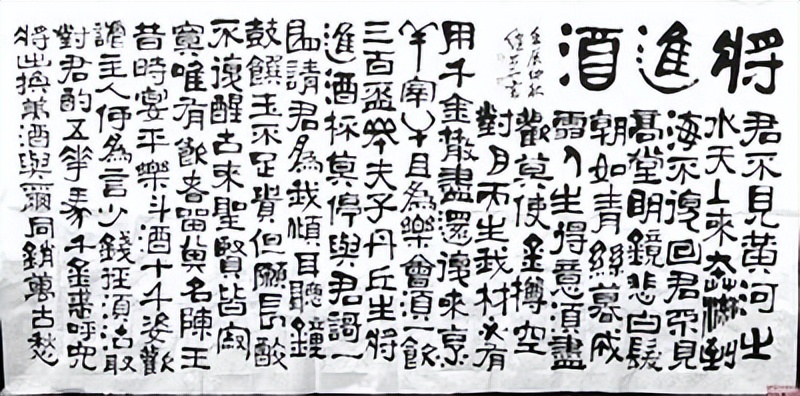 將進酒
君不見黃河之
水天上來奔流到
海不復回君不見
高堂明鏡悲白髮
朝如青絲暮成
雪人生得意須盡
歡莫使金樽空
對月天生我材必有
用千金散盡還復來烹
羊宰牛且為樂會須一飲
三百盃岑夫子丹丘生將
進酒杯莫停與君謌一
曲請君為我傾耳聽鐘
鼓饌玉不足貴但願長醉
不復醒古來聖賢皆寂
寞唯有飲者留其名陳王
昔時宴平樂斗酒十千恣歡
謔主人何為言少錢徑須沽取
對君酌五華馬千金裘呼兒
將出換美酒與爾同銷萬古愁
壬辰仲秋